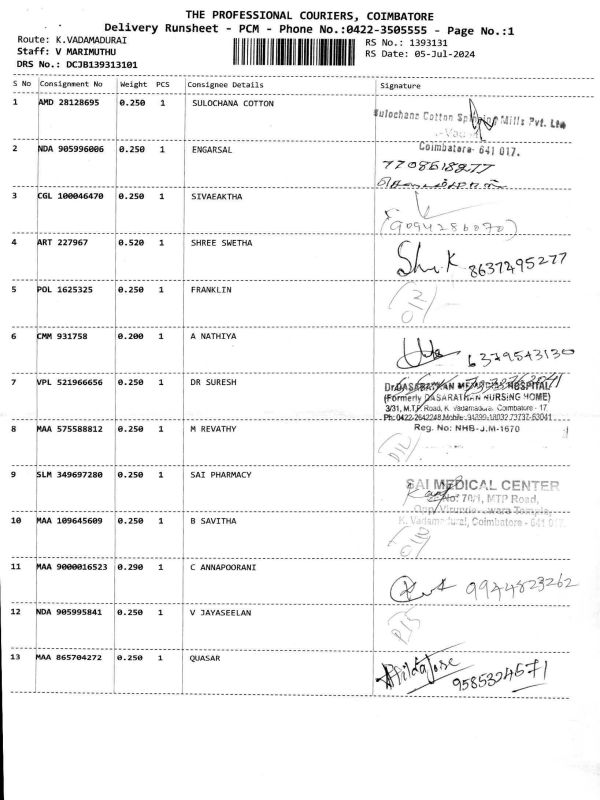 THE PROFESSIONAL COURIERS, COIMBATORE
Delivery Runsheet - PCM - Phone No.:0422-3505555 - Page No.:1
Route: K.VADAMADURAI
RS No.: 1393131
Staff: V MARIMUTHU
RS Date: 05-Jul-2024
DRS No.: DCJB139313101
S No Consignment No Weight PCS Consignee Details Signature
1 AMD 28128695 0.250 1 SULOCHANA COTTON
Sulochana Cotton Spinning Mills Pvt. Ltd
Coimbatore- 641 017.
2 NDA 905996006 0.250 1 ENGARSAL
7708618277
3 CGL 100046470 0.250 1 SIVAEAKTHA
(9094286070)
4 ART 227967 0.520 1 SHREE SWETHA
8637495277
5 POL 1625325 0.250 1 FRANKLIN
6 CMM 931758 0.200 1 A NATHIYA
6379543130
7 VPL 521966656 0.250 1 DR SURESH
Dr.DASARATHAN MEMORIAL HOSPITAL
(Formerly DASARATHAN NURSING HOME)
3/31, M.T.P. Road, K. Vadamadurai, Coimbatore - 17
Ph: 0422-2642248,Mobile: 94899-18032,73737-63041
Reg. No: NHB-J.M-1670
8 MAA 575588812 0.250 1 M REVATHY
9 SLM 349697280 0.250 1 SAI PHARMACY
SAI MEDICAL CENTER
No: 70/1, MTP Road,
K. Vadamadurai, Coimbatore - 641 017.
10 MAA 109645609 0.250 1 B SAVITHA
11 MAA 9000016523 0.290 1 C ANNAPOORANI
9944823262
12 NDA 905995841 0.250 1 V JAYASEELAN
13 MAA 865704272 0.250 1 QUASAR
Hilda Jose
9585324571